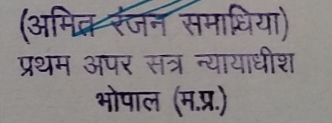 (अमित रंजन समाधिया)
प्रथम अपर सत्र न्यायाधीश
भोपाल (म.प्र.)